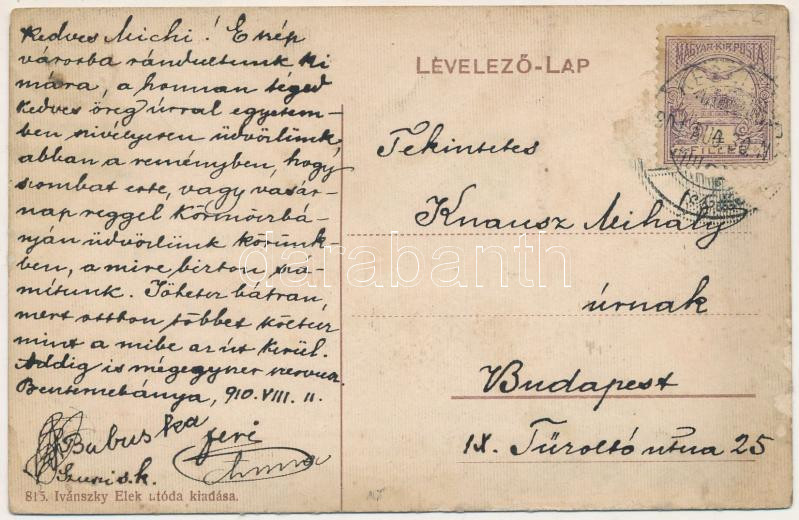 Kedves Michi! E szép
városba rándultunk ki
mára, a honnan téged
kedves öreg úrral egyetem-
ben szivélyesen üdvözlünk,
abban a reményben, hogy
szombat este, vagy vasár-
nap reggel Körmöczbá-
nyán üdvözlünk körünk-
ben, a mire bizton szá-
mítunk. Jöhetsz bátran,
mert otthon többet költesz
mint a mibe az út kerül.
Addig is mégegyszer servus.
Besztercebánya, 910. VIII. 11.
Babuska Jeni
815. Ivánszky Elek utóda kiadása.
LEVELEZŐ-LAP
MAGYAR KIR. POSTA
FILLÉR
Tekintetes
Knausz Mihály
úrnak
Budapest
IX. Tűzoltó utca 25
darabanth